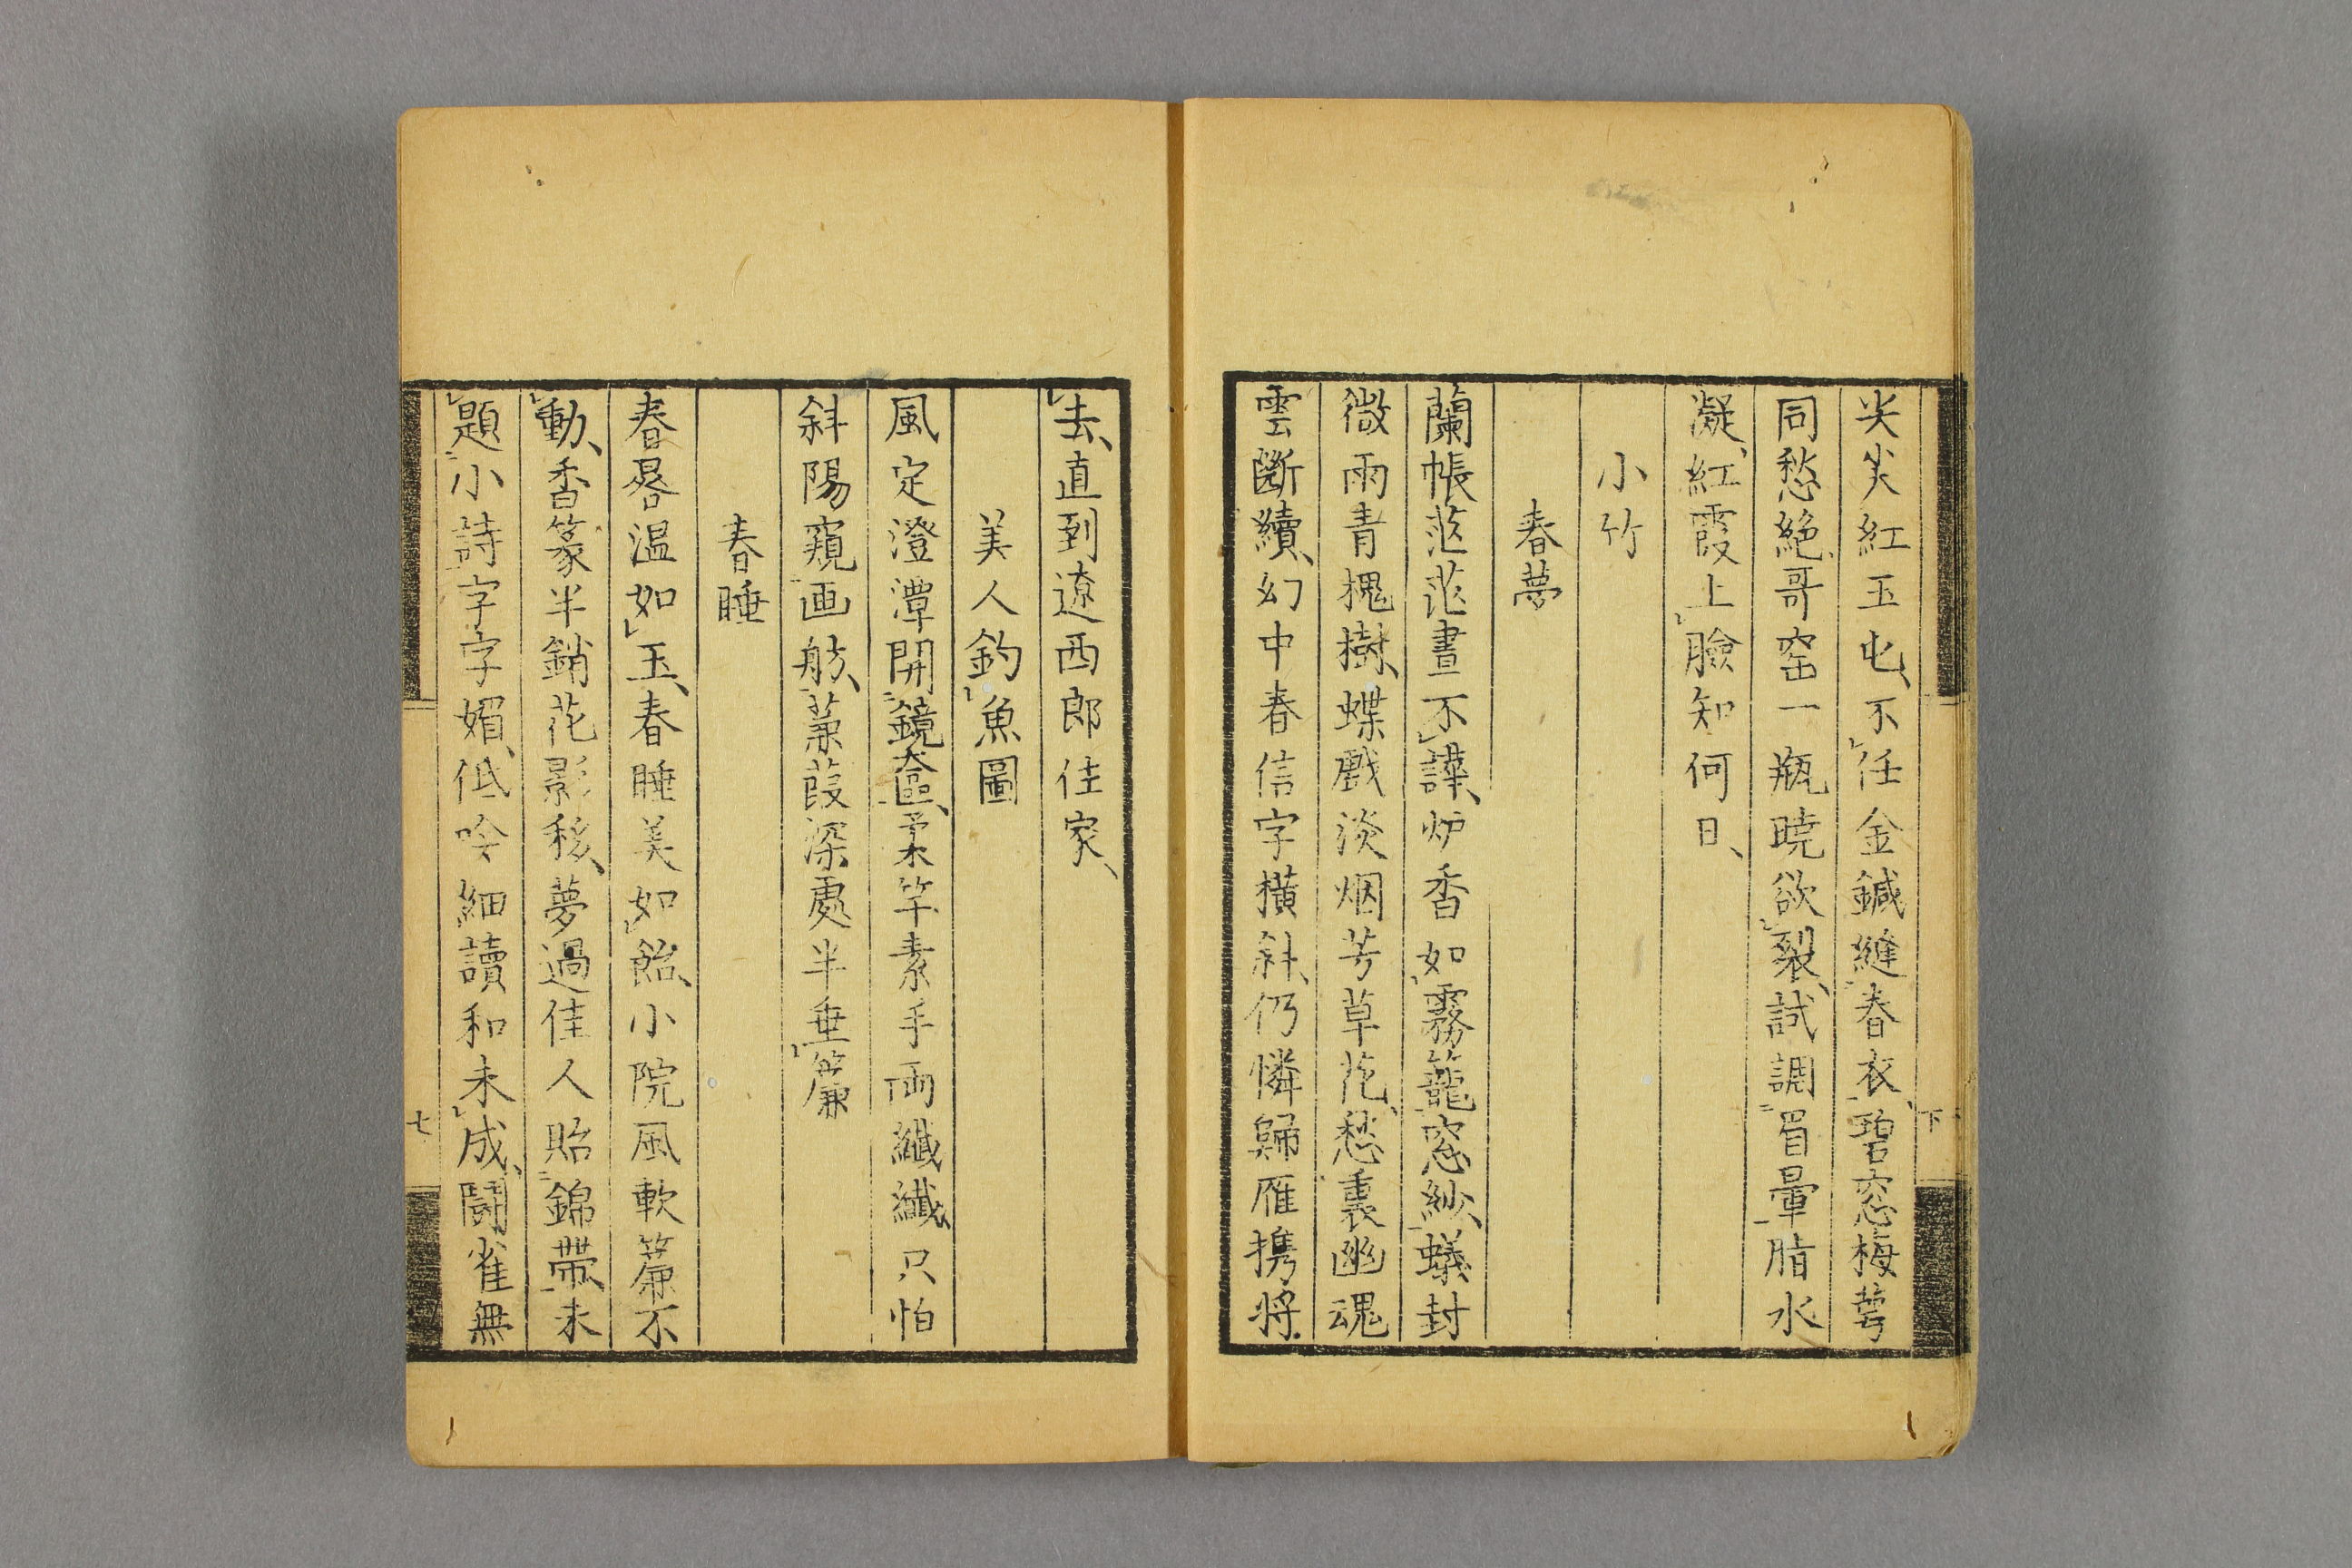 尖尖紅玉屯、不任金鍼縫春衣、碧窓梅萼
同愁絶、哥窑一瓶暁欲裂、試調眉暈脂水
凝、紅霞上臉知何日、
小竹
春夢
蘭帳茫茫晝不譁、炉香如霧籠窓紗、蟻封
微雨青槐樹、蝶戲淡烟芳草花、愁裏幽魂
雲斷續、幻中春信字横斜、仍憐歸雁携将
去、直到遼西郎住家、
美人釣魚圖
風定澄潭開鏡奩、柔竿素手両纖纖、只怕
斜陽窺画舫、蒹葭深處半垂簾
春睡
春晷温如玉、春睡美如飴、小院風軟簾不
動、香篆半銷花影移、夢過佳人貽錦帶、未
題小詩字字媚、低吟細讀和未成、闘雀無
下
七